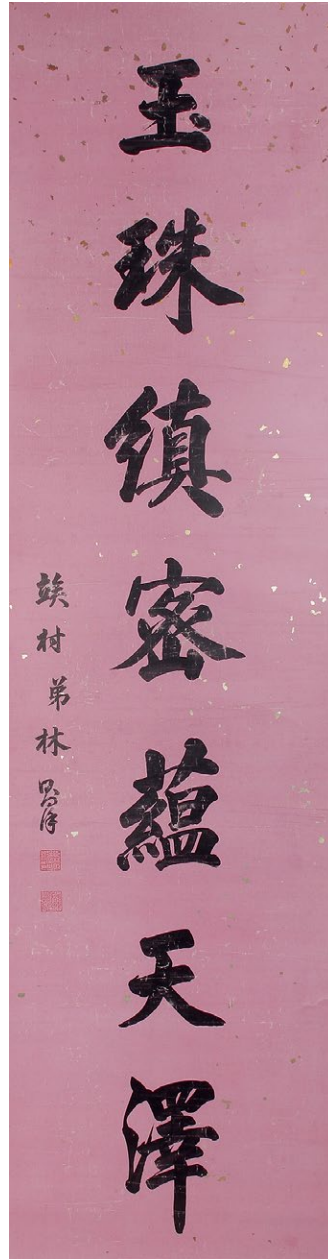 玉珠縝密蘊天澤
竢村弟林則徐